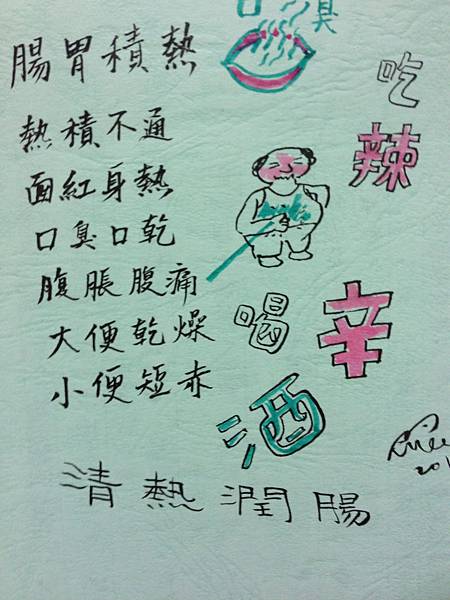 口臭
腸胃積熱
熱積不通
面紅身熱
口臭口乾
腹脹腹痛
大便乾燥
小便短赤
吃辣
辛
喝酒
清熱潤腸